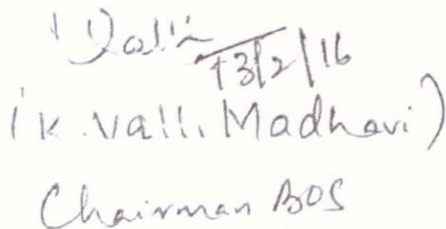 Valli
13/2/16
(K. Valli Madhavi)
Chairman BOS